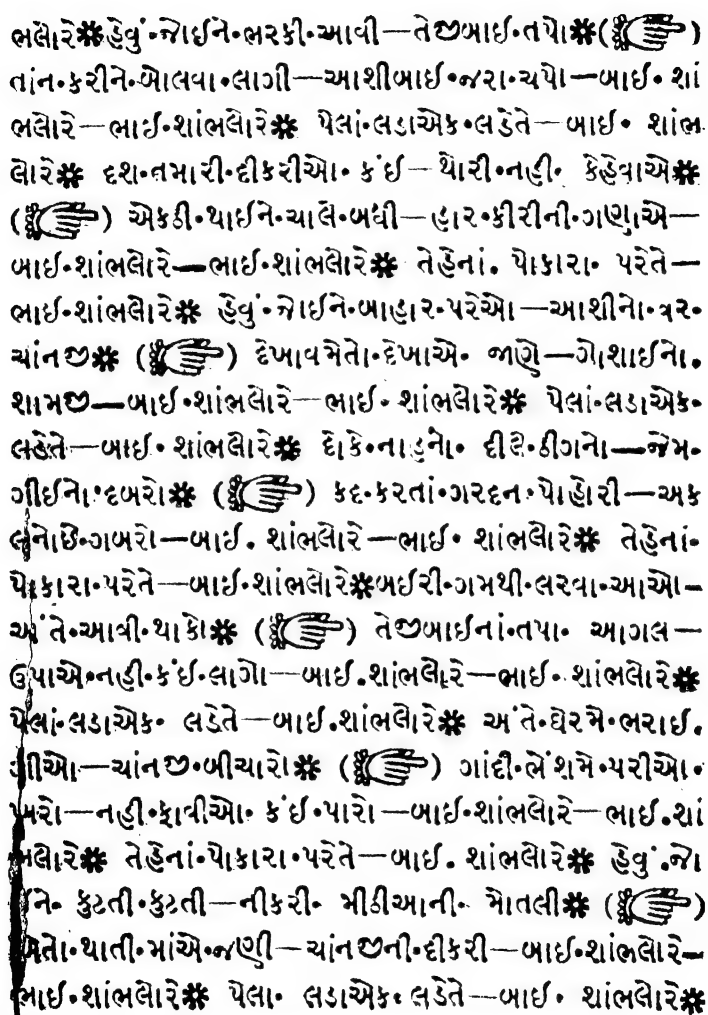 ભલોરે✽હેવું·જોઈને·ભરકી·આવી—તેજીબાઈ·તપો✽(☞)
તાંન·કરીને·બોલવા·લાગી—આશીબાઈ·જરા·ચપો—બાઈ· શાં
ભલોરે—ભાઈ·શાંભલોરે✽ પેલાં·લડાએક·લડેતે—બાઈ· શાંભ
લોરે✽ દશ·તમારી·દીકરીઓ· કંઈ—થોરી·નહી· કેહેવાએ✽
(☞) એકઠી·થાઈને·ચાલે·બધી—હાર·કીરીની·ગણાએ—
બાઈ·શાંભલોરે—ભાઈ·શાંભલોરે✽ તેહેનાં. પોકારા· પરેતે—
ભાઈ·શાંભલોરે✽ હેવું·જોઈને·બાહાર·પરેઓ—આશીનો·વર·
ચાંનજી✽ (☞) દેખાવમેતો·દેખાએ· જાણે—ગોશાઈનો.
શામજી—બાઈ·શાંભલોરે—ભાઈ· શાંભલોરે✽ પેલાં·લડાએક·
લડેતે—બાઈ·શાંભલોરે✽ દોકે·નાહનો· દીલે·ઠીગનો—જેમ·
ગીઈનો·દબરો✽ (☞) કદ·કરતાં·ગરદન·પોહોરી—અક
લનોછે·ગબરો—બાઈ. શાંભલોરે—ભાઈ· શાંભલોરે✽ તેહેનાં·
પોકારા·પરેતે—બાઈ·શાંભલોરે✽બઈરી·ગમથી·લરવા·આઓ—
અંતે·આવી·થાકો✽ (☞) તેજીબાઈનાં·તપા· આગલ—
ઉપાએ·નહી·કંઈ·લાગો—બાઈ.શાંભલોરે—ભાઈ·શાંભલોરે✽
પેલાં·લડાએક· લડેતે—બાઈ.શાંભલોરે✽ અંતે·ઘેરમે·ભરાઈ.
ગીઓ—ચાંનજી·બીચારો✽ (☞) ગાંદી·ભેંશમે·પરીઓ·
ખરો—નહી·ફાવીઓ· કંઈ·પારો—બાઈ·શાંભલોરે—ભાઈ.શાં
ભલોરે✽ તેહેનાં·પોકારા·પરેતે—બાઈ. શાંભલોરે✽ હેવું.જો
ઈને· કુટતી·કુટતી—નીકરી· મીઠીઆની· મોતલી✽ (☞)
થાતી·માંએ·જણી—ચાંનજીની·દીકરી—બાઈ·શાંભલોરે—
ભાઈ·શાંભલોરે✽ પેલા· લડાએક· લડેતે—બાઈ· શાંભલોરે✽